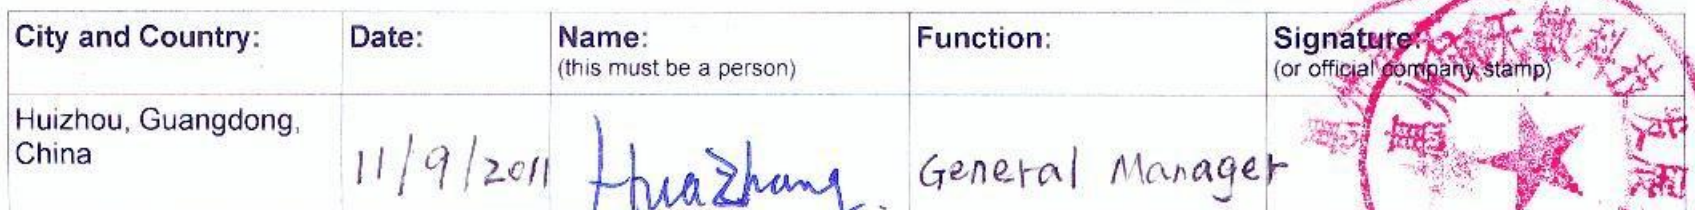 City and Country:
Date:
Name:
(this must be a person)
Function:
Signature:
(or official company stamp)
Huizhou, Guangdong,
China
11/9/2011
HuaZhang
General Manager